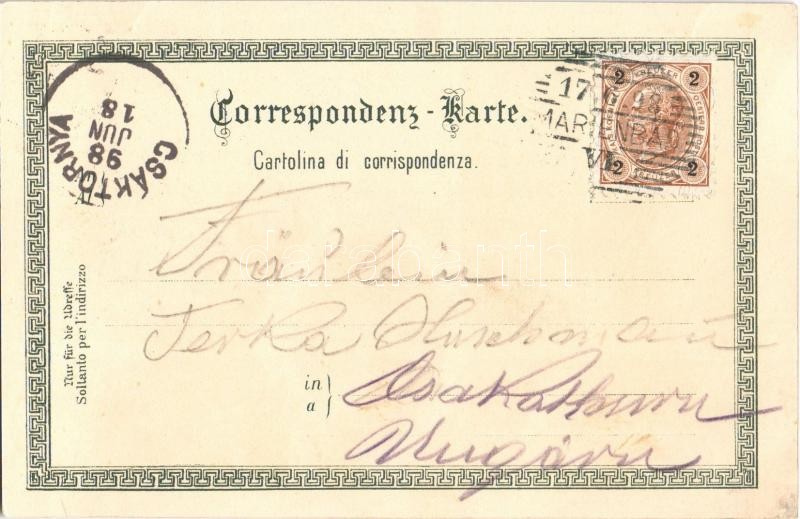 Correspondenz-Karte.
Cartolina di corrispondenza.
CSÁKTORNYA
98
JUN
18
17
MARIENBAD
2 2
2 2
Fräulein
Terka
in
a
Ungarn
Nur für die Adresse
Soltanto per l'indirizzo
darabanth